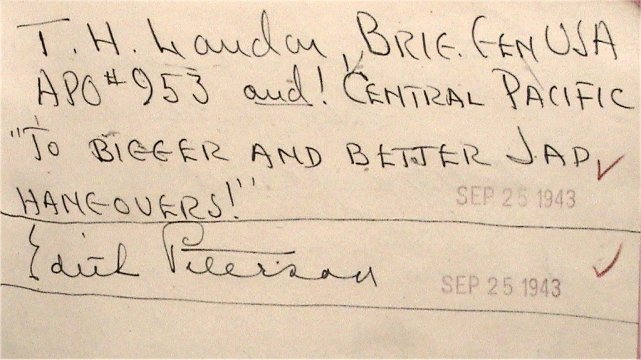 T. H. Landon, BRIG. GEN USA
APO #953 and! CENTRAL PACIFIC
"TO BIGGER AND BETTER JAP
HANGOVERS!"
SEP 25 1943
Edith Peterson
SEP 25 1943